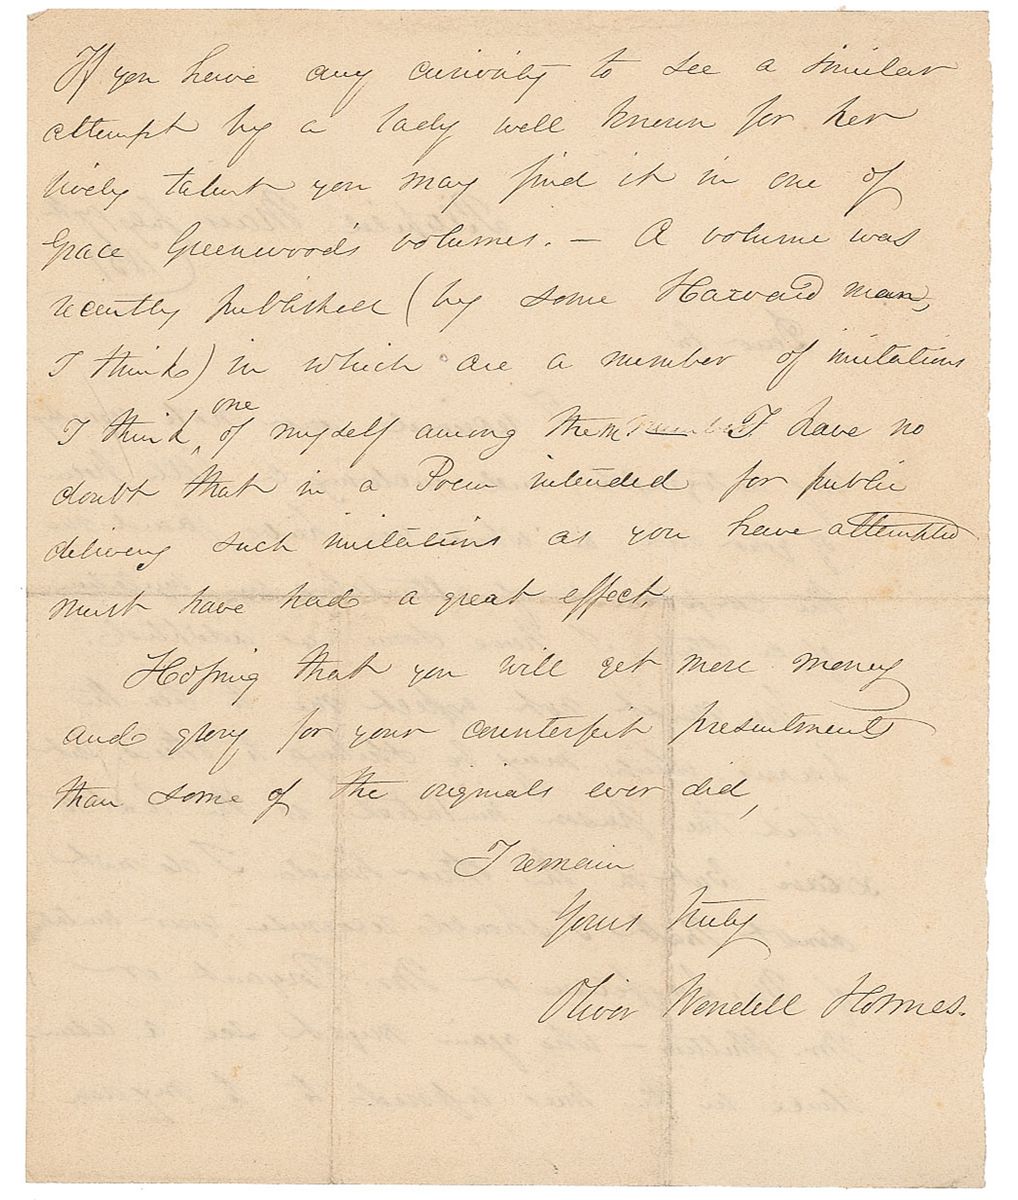 If you have any curiosity to see a similar
attempt by a lady well known for her
lively talent you may find it in one of
Grace Greenwood's volumes. — A volume was
recently published (by some Harvard man,
I think) in which are a number of imitations
I think one of myself among them. I have no
doubt that in a Poem intended for public
delivery such imitations as you have attempted
must have had a great effect.
Hoping that you will get more money
and glory for your counterfeit presentments
than some of the originals ever did,
I remain
Yours truly
Oliver Wendell Holmes.